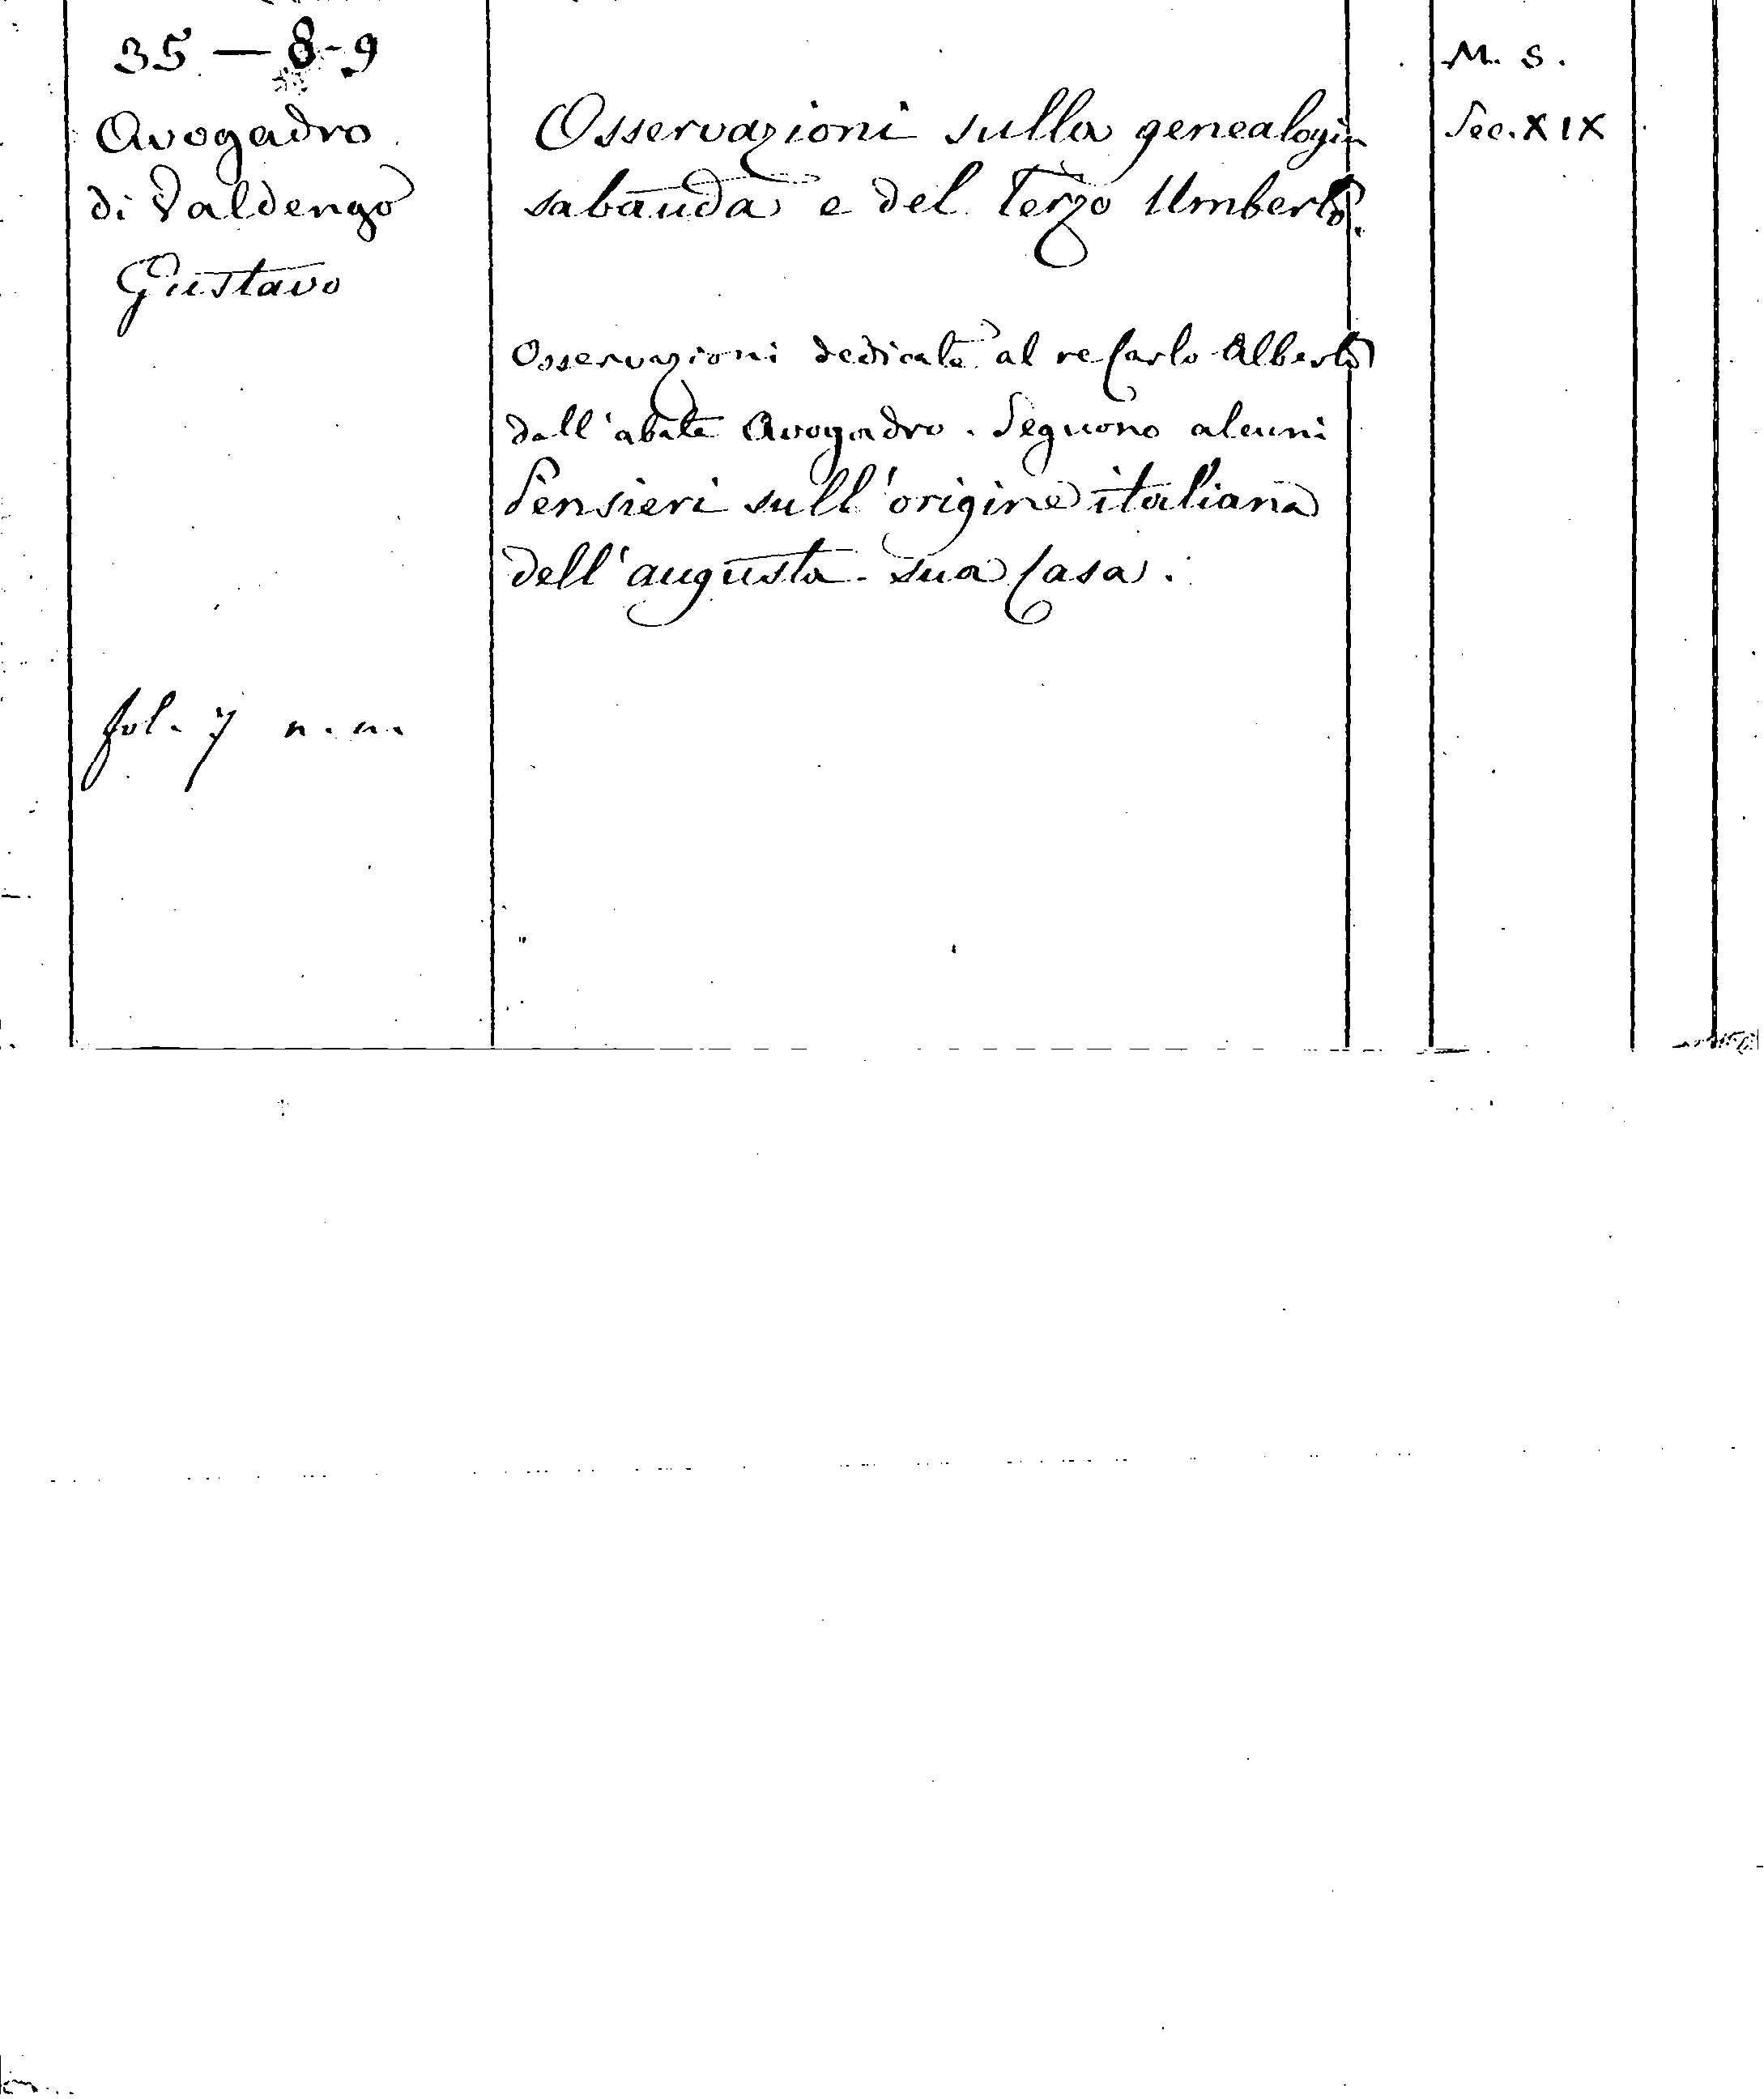 35 — 8-9
Avogadro
di Valdengo
Gustavo
fol. 7 n. n.
Osservazioni sulla genealogia
sabauda e del Terzo Umberto.
Osservazioni dedicate al re Carlo Alberto
dall'abate Avogadro. Seguono alcuni
Pensieri sull'origine italiana
dell'augusta sua Casa.
M. S.
Sec. XIX